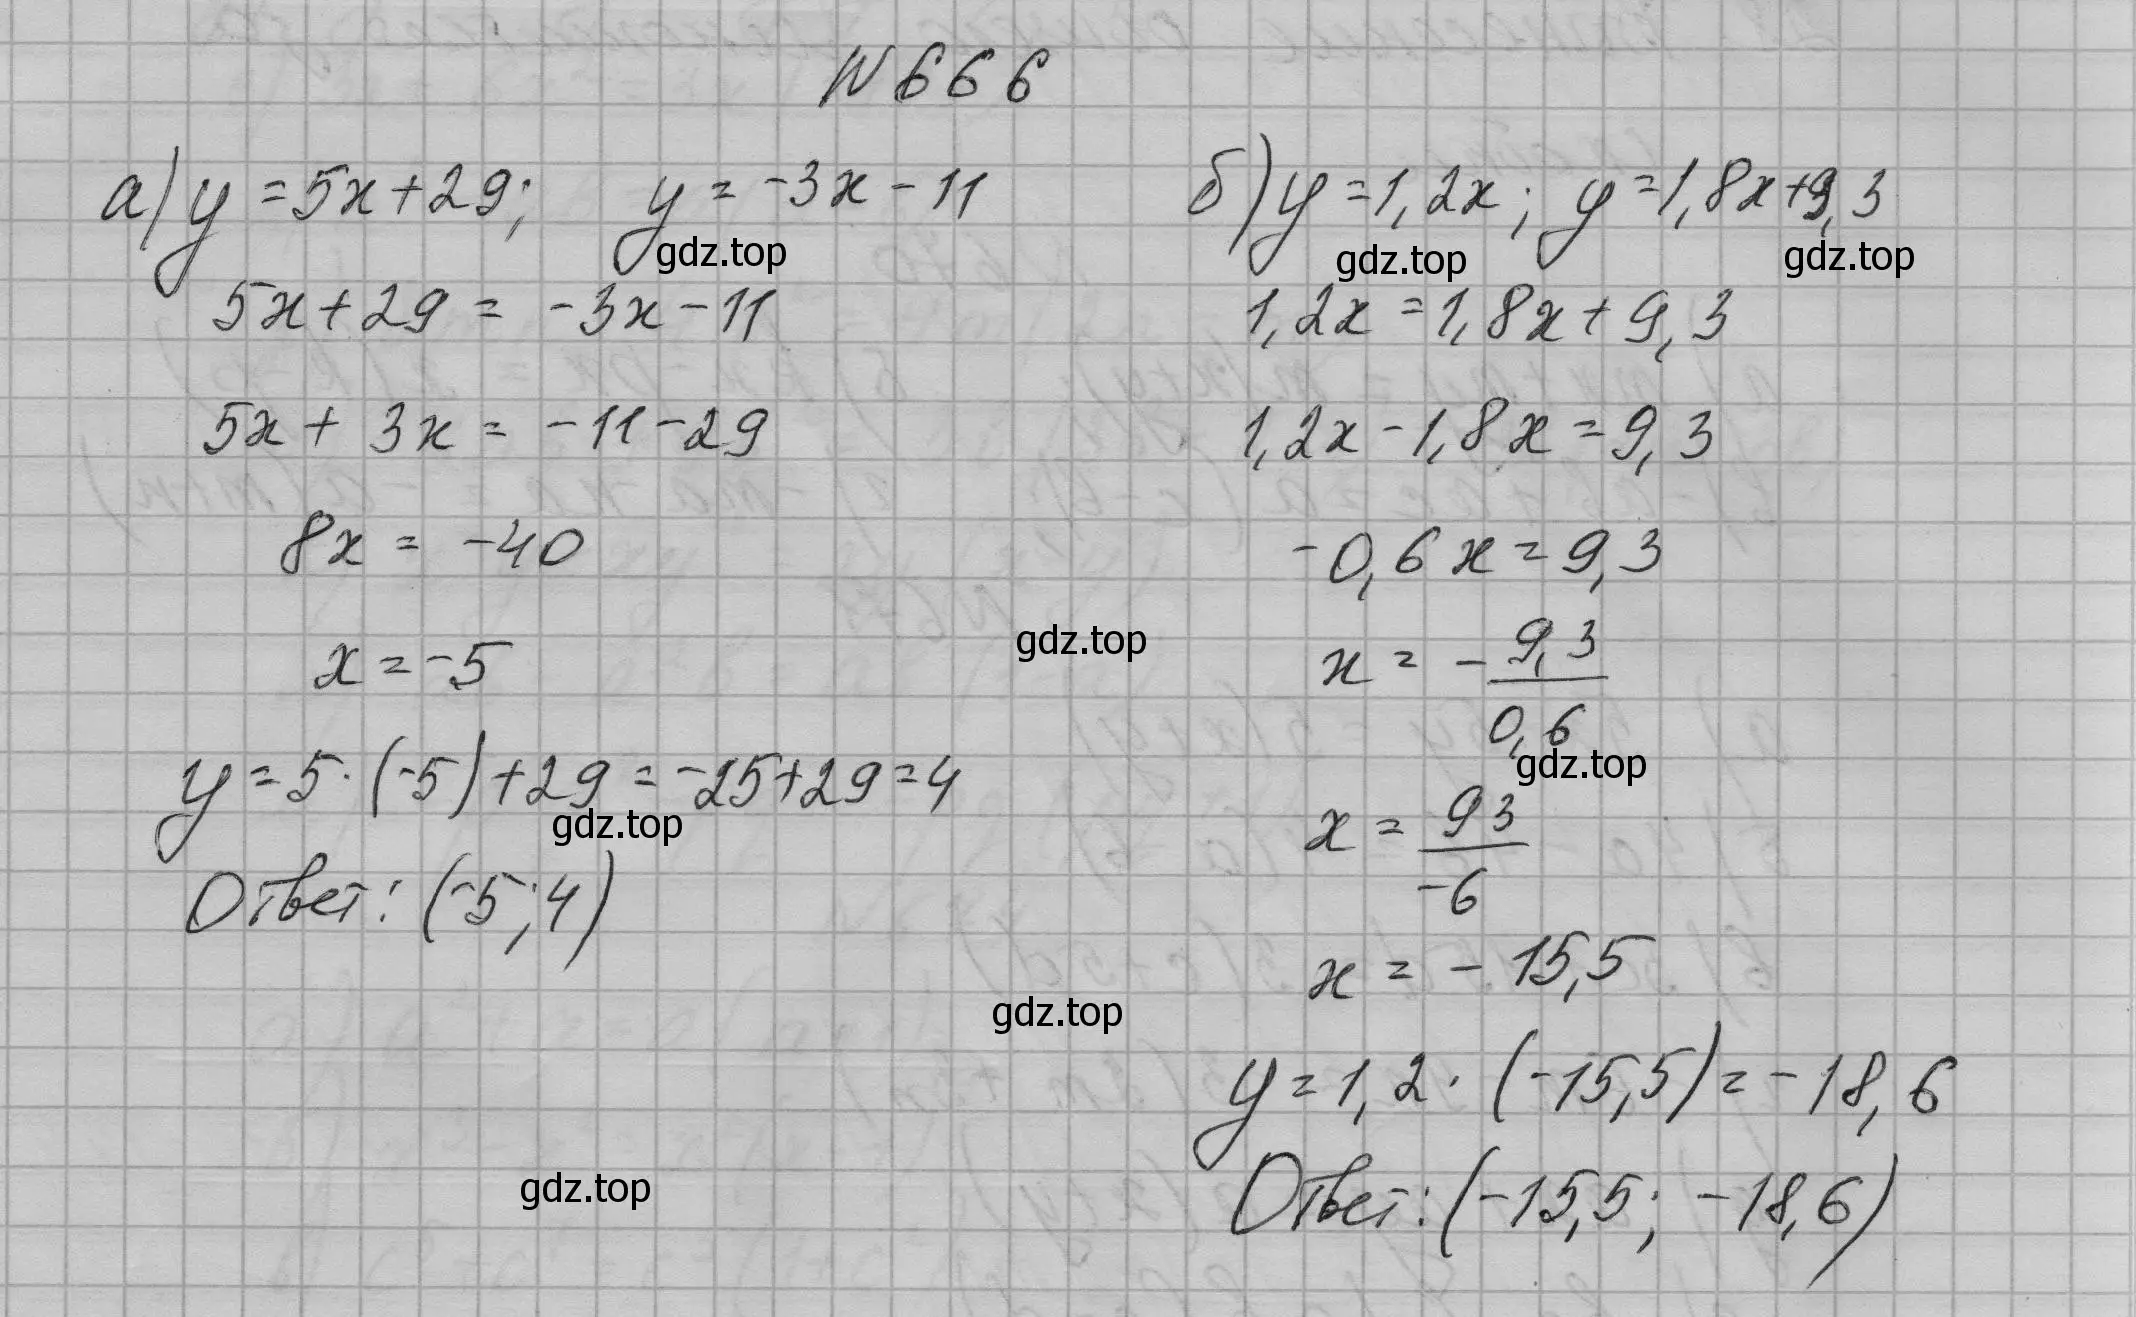 N 666
а) y = 5x + 29; y = -3x - 11
gdz.top
5x + 29 = -3x - 11
5x + 3x = -11 - 29
8x = -40
x = -5
gdz.top
y = 5 · (-5) + 29 = -25 + 29 = 4
gdz.top
Ответ: (-5; 4)
gdz.top
gdz.top
б) y = 1,2x; y = 1,8x + 9,3
gdz.top
gdz.top
1,2x = 1,8x + 9,3
1,2x - 1,8x = 9,3
-0,6x = 9,3
x = - 9,3 / 0,6
gdz.top
x = 93 / -6
x = - 15,5
y = 1,2 · (-15,5) = -18,6
Ответ: (-15,5; -18,6)